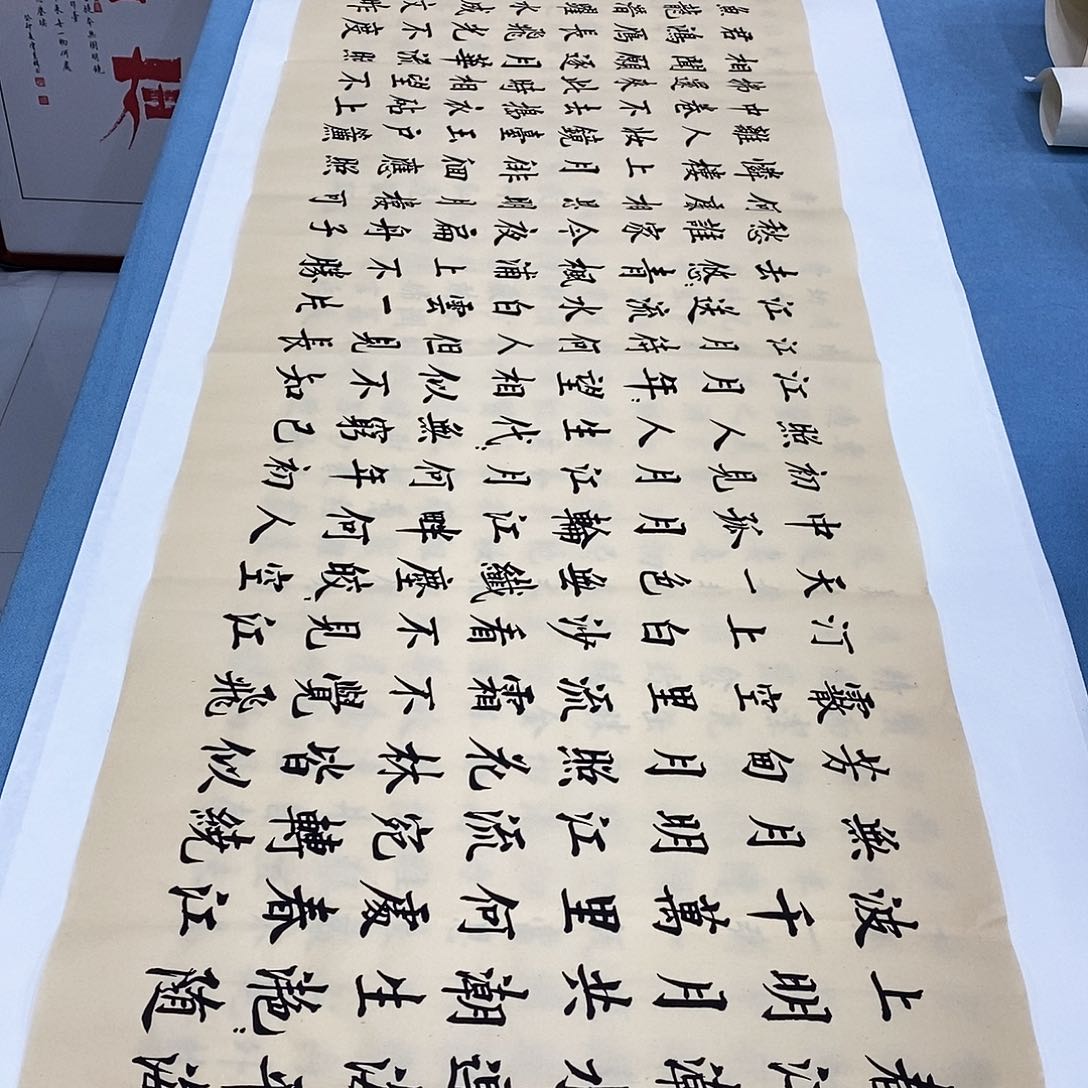 春江潮水連海平海
上明月共潮生灔〻隨
波千萬里何處春江
無月明江流宛轉繞
芳甸月照花林皆似
霰空里流霜不覺飛
汀上白沙看不見江
天一色無纖塵皎〻空
中孤月輪江畔何人
初見月江月何年初
照人人生代〻無窮已
江月年〻望相似不知
江月待何人但見長
江送流水白雲一片
去悠〻青楓浦上不勝
愁誰家今夜扁舟子
何處相思明月樓可
憐樓上月徘徊應照
離人妝鏡臺玉戶簾
中卷不去搗衣砧上
拂還來此時相望不
相聞願逐月華流照
君鴻雁長飛光不度
魚龍潛躍水成文昨